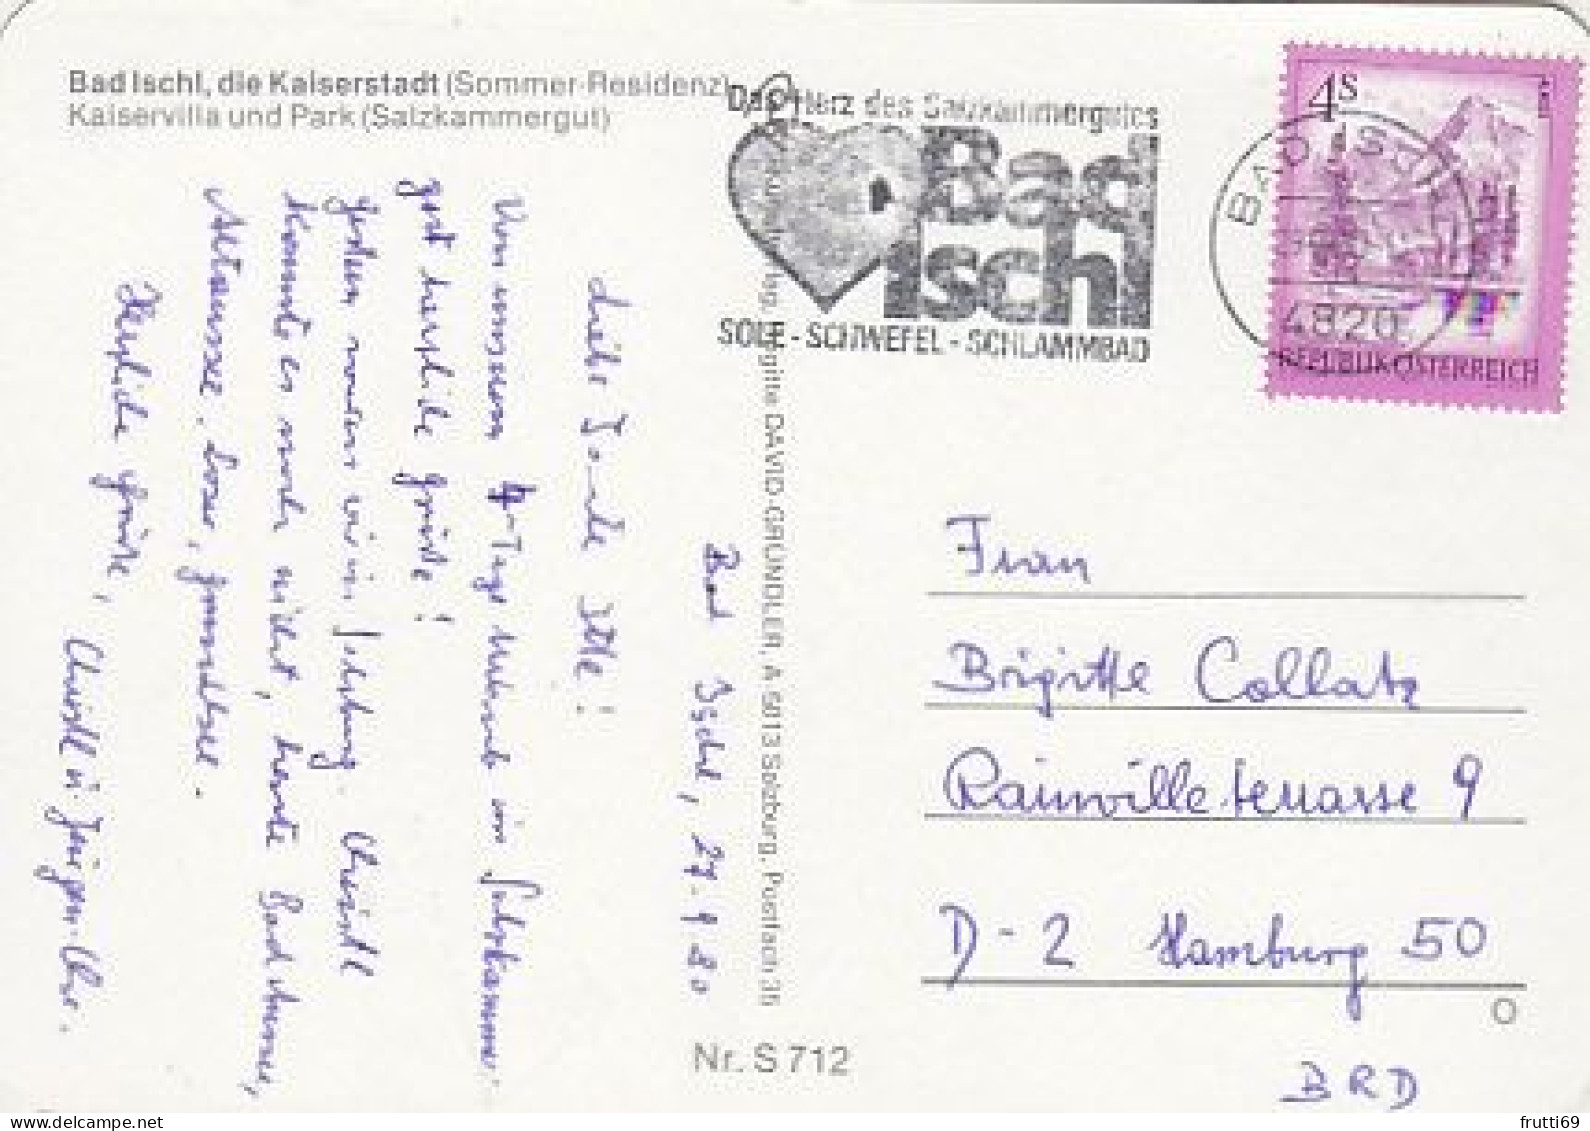 Bad Ischl, die Kaiserstadt (Sommer-Residenz)
Kaiservilla und Park (Salzkammergut)
Das Herz des Salzkammergutes
Bad
Ischl
SOLE - SCHWEFEL - SCHLAMMBAD
4S
REPUBLIK ÖSTERREICH
BAD ISCHL
4820
Bad Ischl, 27.9.80
Liebe Tante Ille!
Von unserem 4-Tage Urlaub im Salzkammer-
gut herzliche Grüße!
Gestern waren wir in Salzburg. Christl
kannte es noch nicht, heute Bad Ischl,
Altaussee, Loser, Grundlsee.
Herzliche Grüße, Christl u. Jürgen
Brigitte DAVID-GRÜNDLER, A 5013 Salzburg, Postfach 36
Frau
Brigitte Collatz
Rainvilleterrasse 9
D-2 Hamburg 50
BRD
Nr. S 712
frutti69